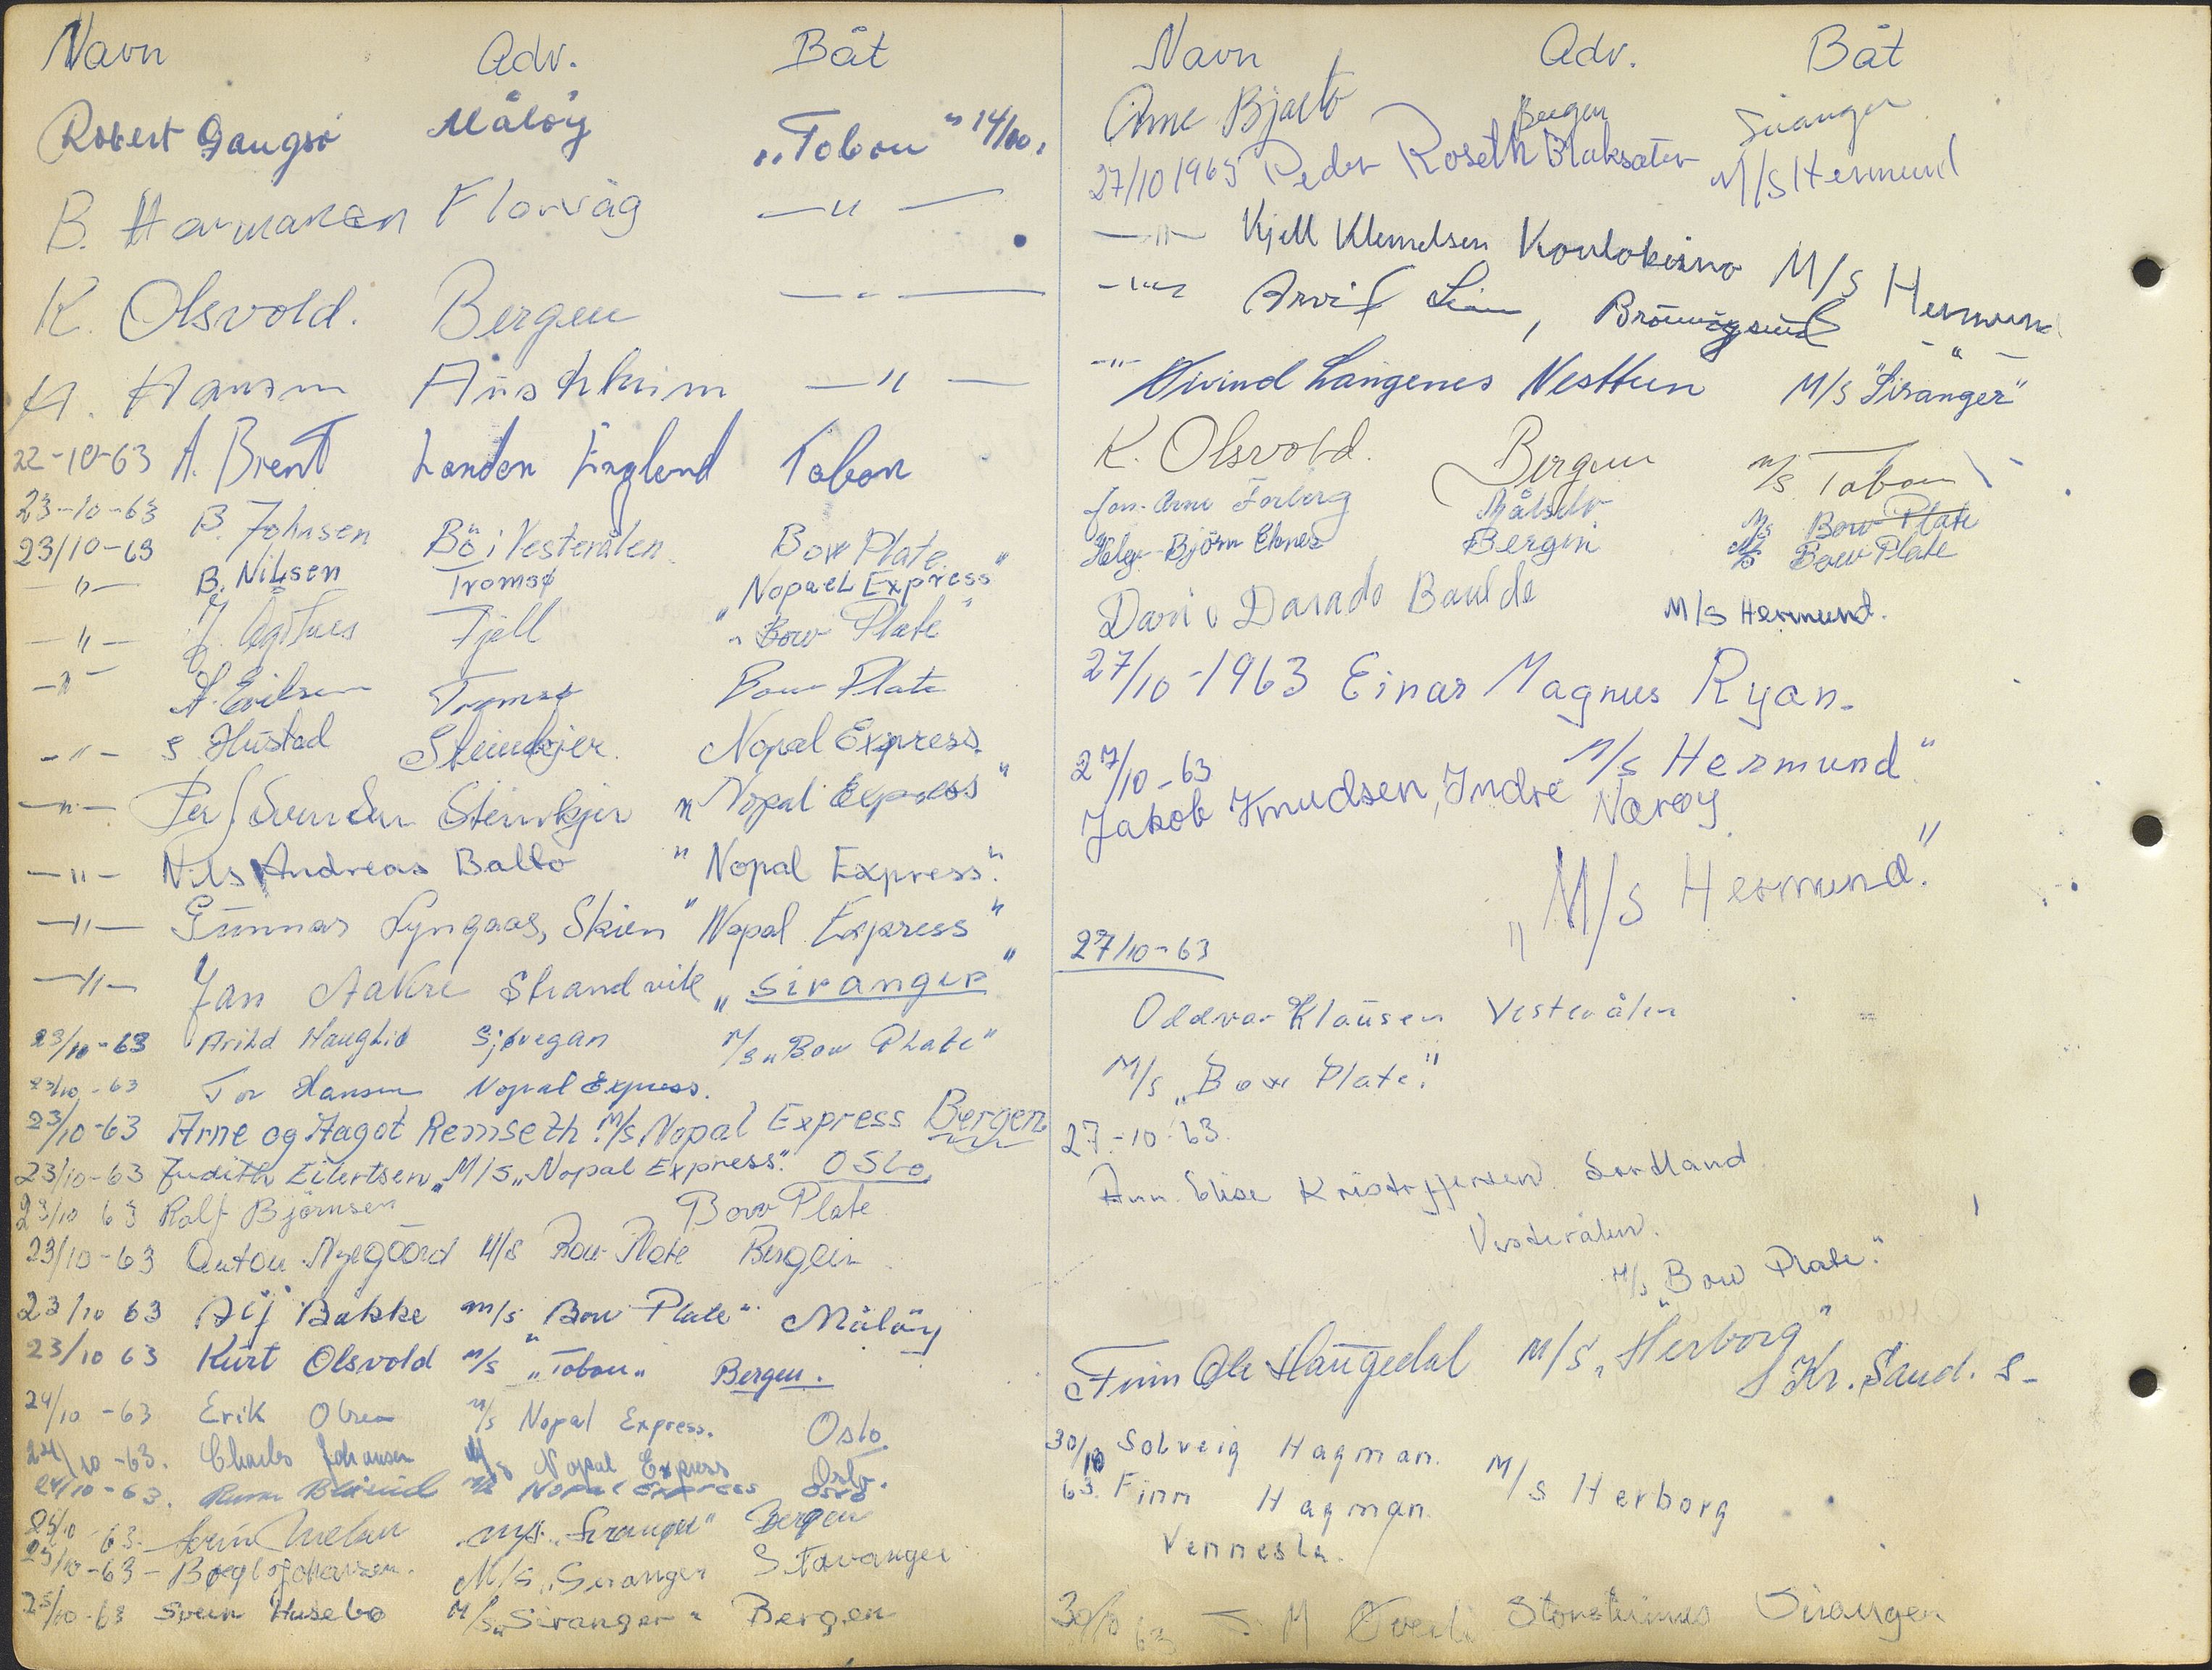 Navn Adv. Båt
Robert Gangsö Målöy "Tobon" 14/10.
B. Hermansen Florvåg —"—
K. Olsvold. Bergen —"—
A. Hansen —"—
22-10-63 A. Brent London England Tobon
23-10-63 B. Johnsen Bö i Vesterålen Bow Plate
23/10-63
—"— B. Nilsen Tromsø "Nopael Express"
—"— J. Fjell "Bow Plate"
—"— A. Eriksen Tromsø Bow Plate
—"— S Hustad Steinkjer. Nopal Express.
—"— Per Steinkjer "Nopal Express"
—"— Nils Andreas Balto "Nopal Express".
—"— Gunnar Lyngaas, Skien "Nopal Express"
—"— Jan Aakre Strandvik "Siranger"
23/10-63 Arild Hauglid Sjøvegan M/s "Bow Plate"
23/10-63 Tor Hansen Nopal Express.
23/10-63 Arne og Aagot Remseth. M/s Nopal Express Bergen
23/10-63 Judith Eilertsen "M/S "Nopal Express". OSLO.
23/10 63 Rolf Björnsen Bow Plate
23/10-63 Anton Nyegaard M/s Bow Plate Bergen
23/10 63 Alf Bakke m/s "Bow Plate" Målöy
23/10 63 Kurt Olsvold M/s "Tobon" Bergen.
24/10-63 Erik Olsen M/s Nopal Express. Oslo
24/10-63. Charles Johansen M/s Nopal Express Oslo.
24/10-63. M/s Nopal Express Oslo
25/10 63. M/S. "Siranger" Bergen
25/10-63 - Johansen. M/S "Siranger Stavanger
25/10-63 Svein Husebø M/s "Siranger" Bergen
Navn Adv. Båt
Arne Bergen Siranger
27/10 1963 Peder Roseth Blaksæter M/S Hermund
—"— Kjell Klemetsen Koutokeino M/S Hermund
—"— Arvid Lien, Brönnöysund —"—
—"— Öivind Langenes Nesttun M/S "Siranger"
K. Olsvold. Bergen M/s Tobon
Jan-Arne Forberg Målselv M/s Bow Plate
Helge-Björn Bergen M/s Bow Plate
M/S Hermund.
27/10-1963 Einar Magnus Ryan.
M/s Hermund"
27/10-63
Jakob Knudsen, Indre Nærøy.
"M/S Hermund."
27/10-63
Oddvar Klausen Vesterålen
M/s "Bow Plate."
27-10-63.
Ann-Elise Kristoffersen Sortland
Vesterålen.
M/s "Bow Plate."
Finn Ole Haugedal M/S "Herborg" Kr. Sand. S-
30/10 Solveig Hagman. M/S Herborg
63. Finn Hagman.
Vennesla.
30/10 63 M Siranger